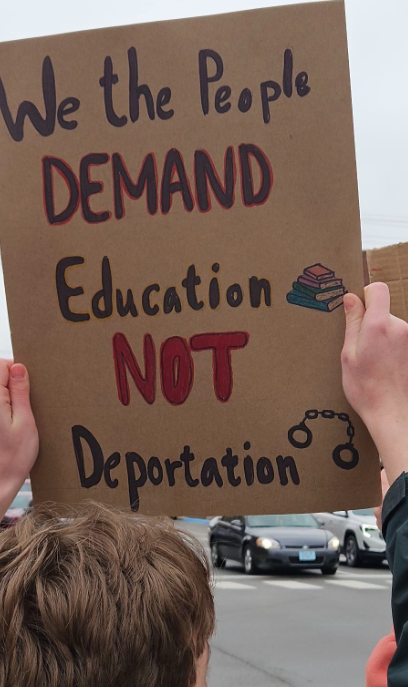 We the People
DEMAND
Education
NOT
Deportation